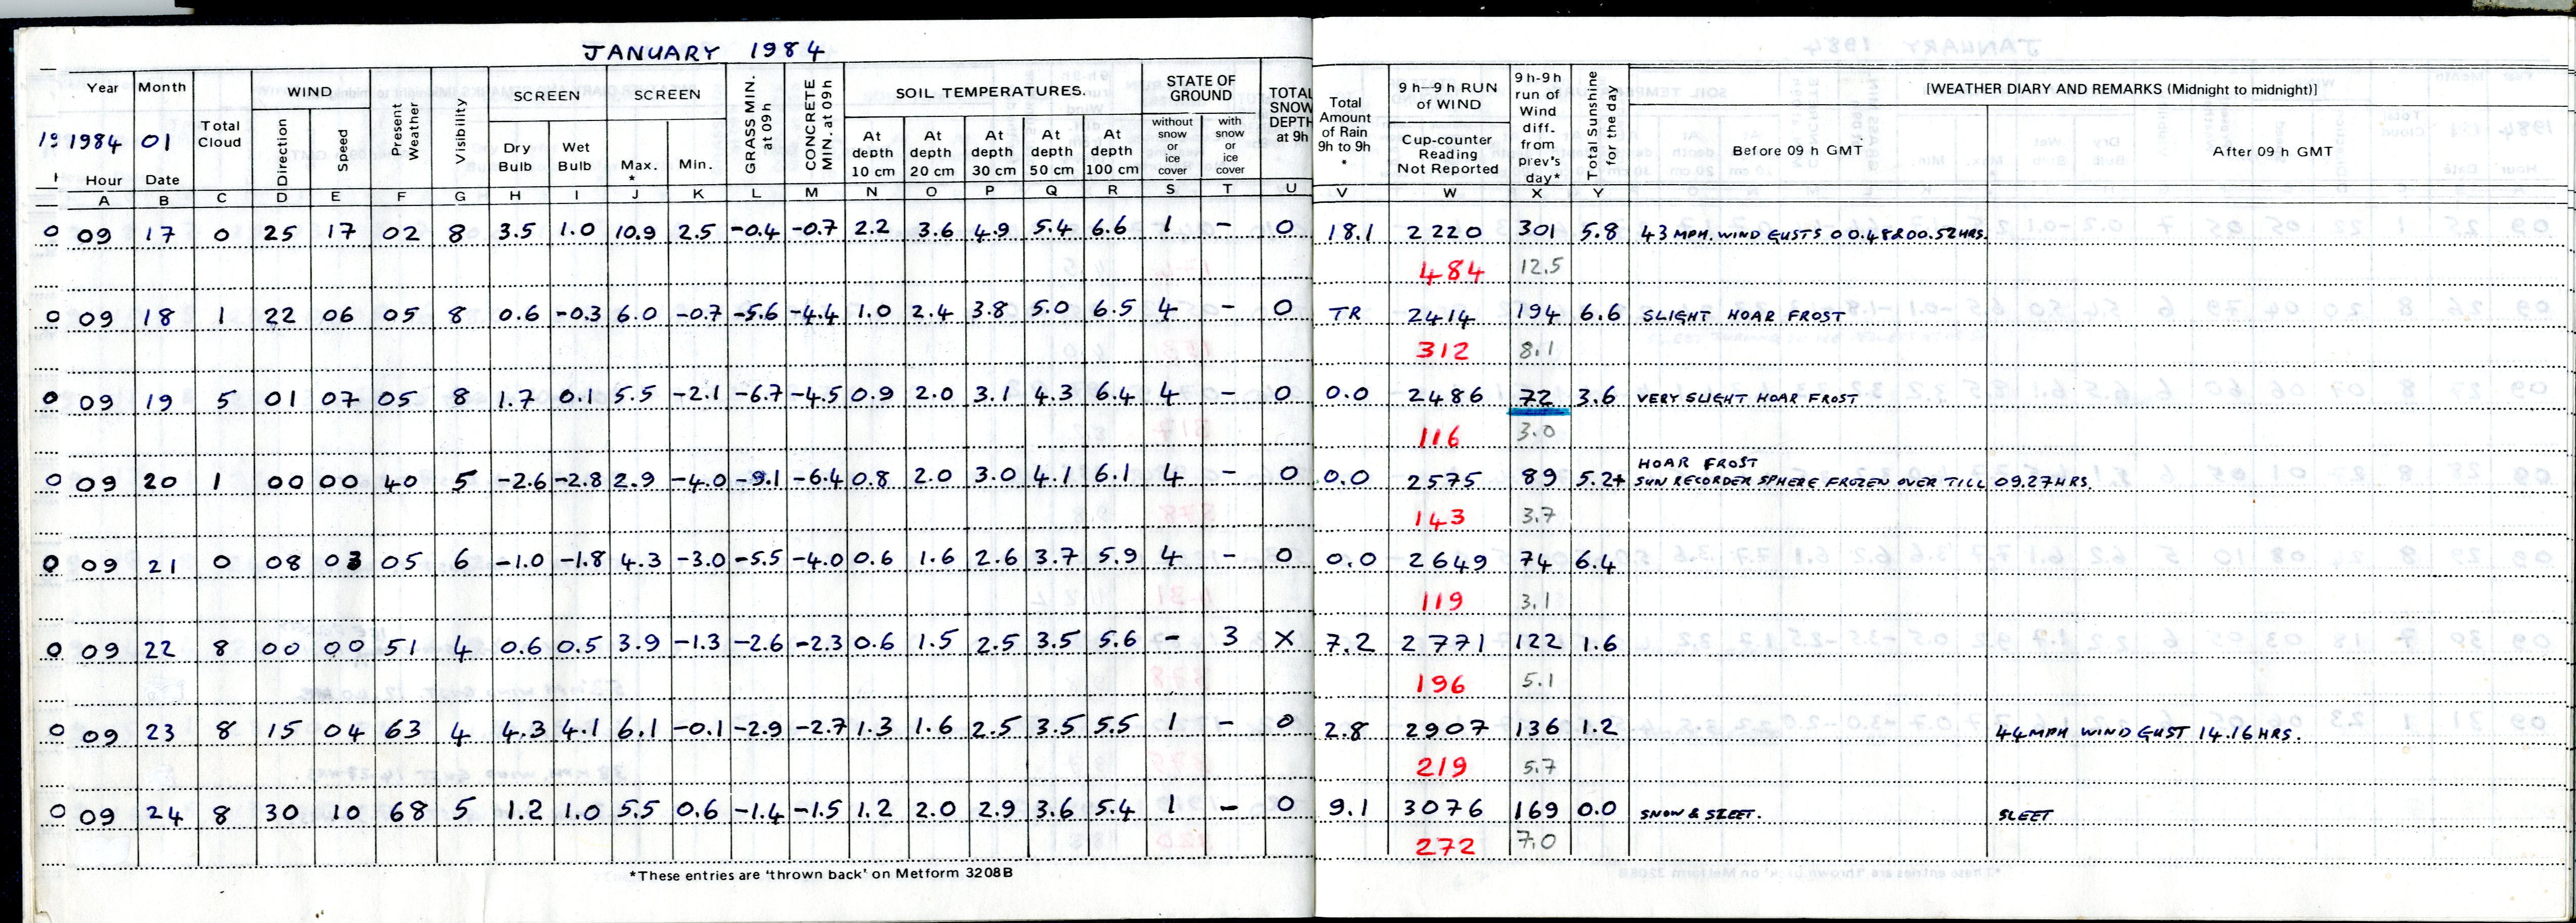 JANUARY 1984
Year Month Total Cloud WIND Present Weather Visibility SCREEN SCREEN GRASS MIN. at 09h CONCRETE MIN. at 09h SOIL TEMPERATURES. STATE OF GROUND TOTAL SNOW DEPTH at 9h Total Amount of Rain 9h to 9h * 9h—9h RUN of WIND 9h-9h run of Wind diff. from prev's day* Total Sunshine for the day [WEATHER DIARY AND REMARKS (Midnight to midnight)]
1984 01 Direction Speed Dry Bulb Wet Bulb Max. * Min. At depth 10 cm At depth 20 cm At depth 30 cm At depth 50 cm At depth 100 cm without snow or ice cover with snow or ice cover Cup-counter Reading Not Reported Before 09 h GMT After 09 h GMT
Hour Date
A B C D E F G H I J K L M N O P Q R S T U V W X Y
0 09 17 0 25 17 02 8 3.5 1.0 10.9 2.5 -0.4 -0.7 2.2 3.6 4.9 5.4 6.6 1 - 0 18.1 2220 301 5.8 43 MPH. WIND GUSTS 00.48&00.52HRS.
484 12.5
0 09 18 1 22 06 05 8 0.6 -0.3 6.0 -0.7 -5.6 -4.4 1.0 2.4 3.8 5.0 6.5 4 - 0 TR 2414 194 6.6 SLIGHT HOAR FROST
312 8.1
0 09 19 5 01 07 05 8 1.7 0.1 5.5 -2.1 -6.7 -4.5 0.9 2.0 3.1 4.3 6.4 4 - 0 0.0 2486 72 3.6 VERY SLIGHT HOAR FROST
116 3.0
HOAR FROST
0 09 20 1 00 00 40 5 -2.6 -2.8 2.9 -4.0 -9.1 -6.4 0.8 2.0 3.0 4.1 6.1 4 - 0 0.0 2575 89 5.2+ SUN RECORDER SPHERE FROZEN OVER TILL 09.27HRS.
143 3.7
0 09 21 0 08 03 05 6 -1.0 -1.8 4.3 -3.0 -5.5 -4.0 0.6 1.6 2.6 3.7 5.9 4 - 0 0.0 2649 74 6.4
119 3.1
0 09 22 8 00 00 51 4 0.6 0.5 3.9 -1.3 -2.6 -2.3 0.6 1.5 2.5 3.5 5.6 - 3 X 7.2 2771 122 1.6
196 5.1
0 09 23 8 15 04 63 4 4.3 4.1 6.1 -0.1 -2.9 -2.7 1.3 1.6 2.5 3.5 5.5 1 - 0 2.8 2907 136 1.2 44MPH WIND GUST 14.16HRS.
219 5.7
0 09 24 8 30 10 68 5 1.2 1.0 5.5 0.6 -1.4 -1.5 1.2 2.0 2.9 3.6 5.4 1 - 0 9.1 3076 169 0.0 SNOW & SLEET. SLEET
272 7.0
*These entries are 'thrown back' on Metform 3208B